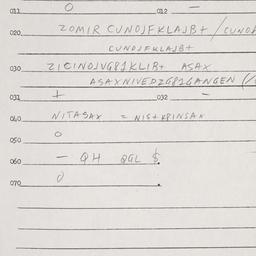 011 0 012 —
020 ZOMIR CUNOJFKLAJB+ / CUNOJ
CUNOJFKLAJB+
030 ZICINOJVG81KLIB+ ASAX
ASAXNIVEDZG81GANGEN
031 + 032 —
040 NITASAX = NIS+KPINSAX
050 0
060 — QH QGL $
070 0